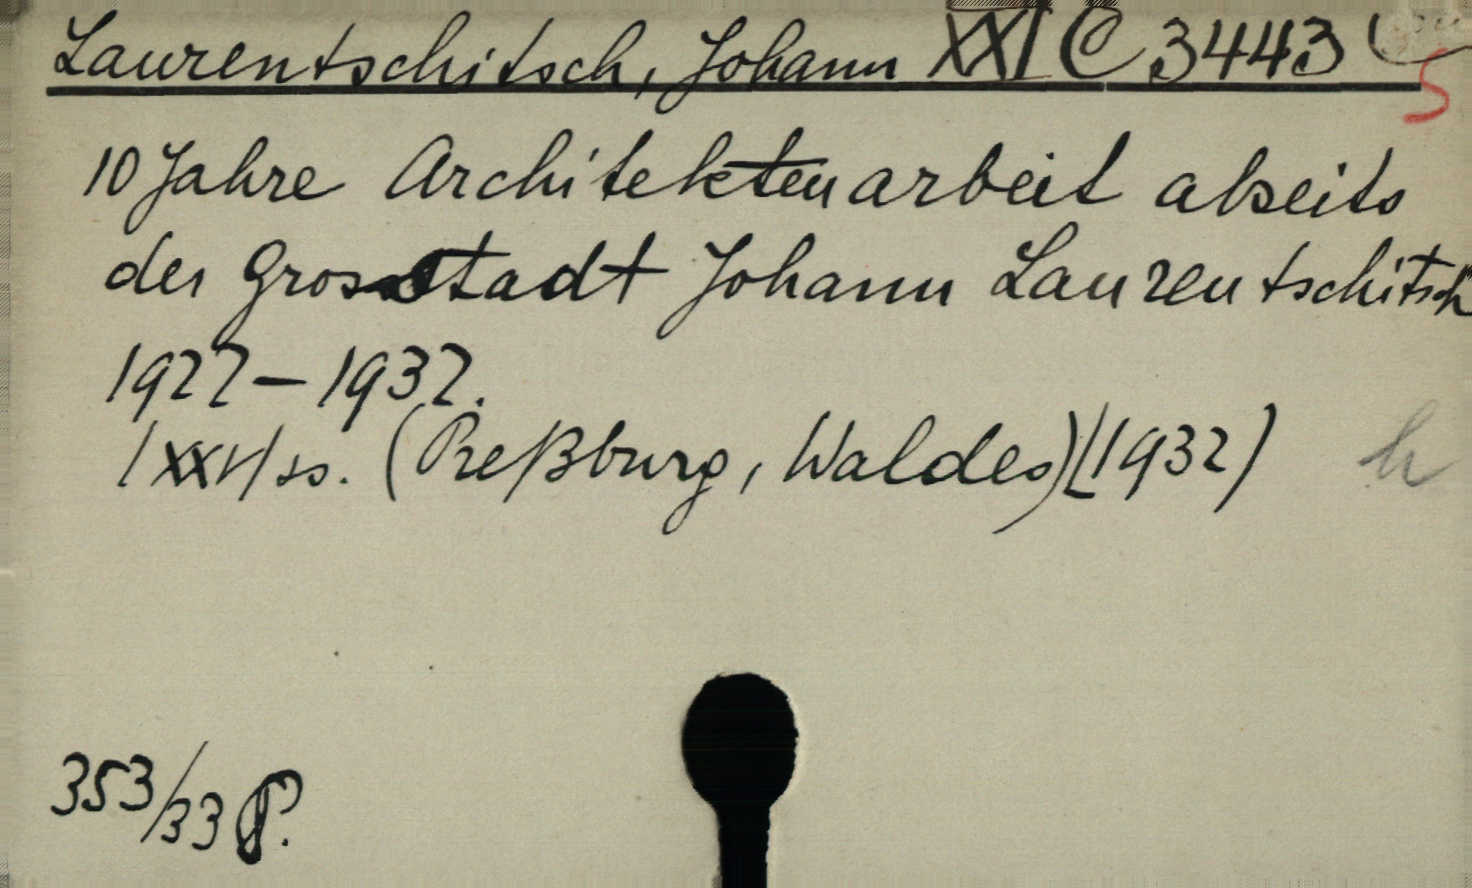 Laurentschitsch, Johann XXI C 3443
S
10 Jahre Architektenarbeit abseits
der Grosstadt Johann Laurentschitsch
1922–1932.
/XXV/ ss. (Preßburg, Waldes) (1932)
h
353/33 P.